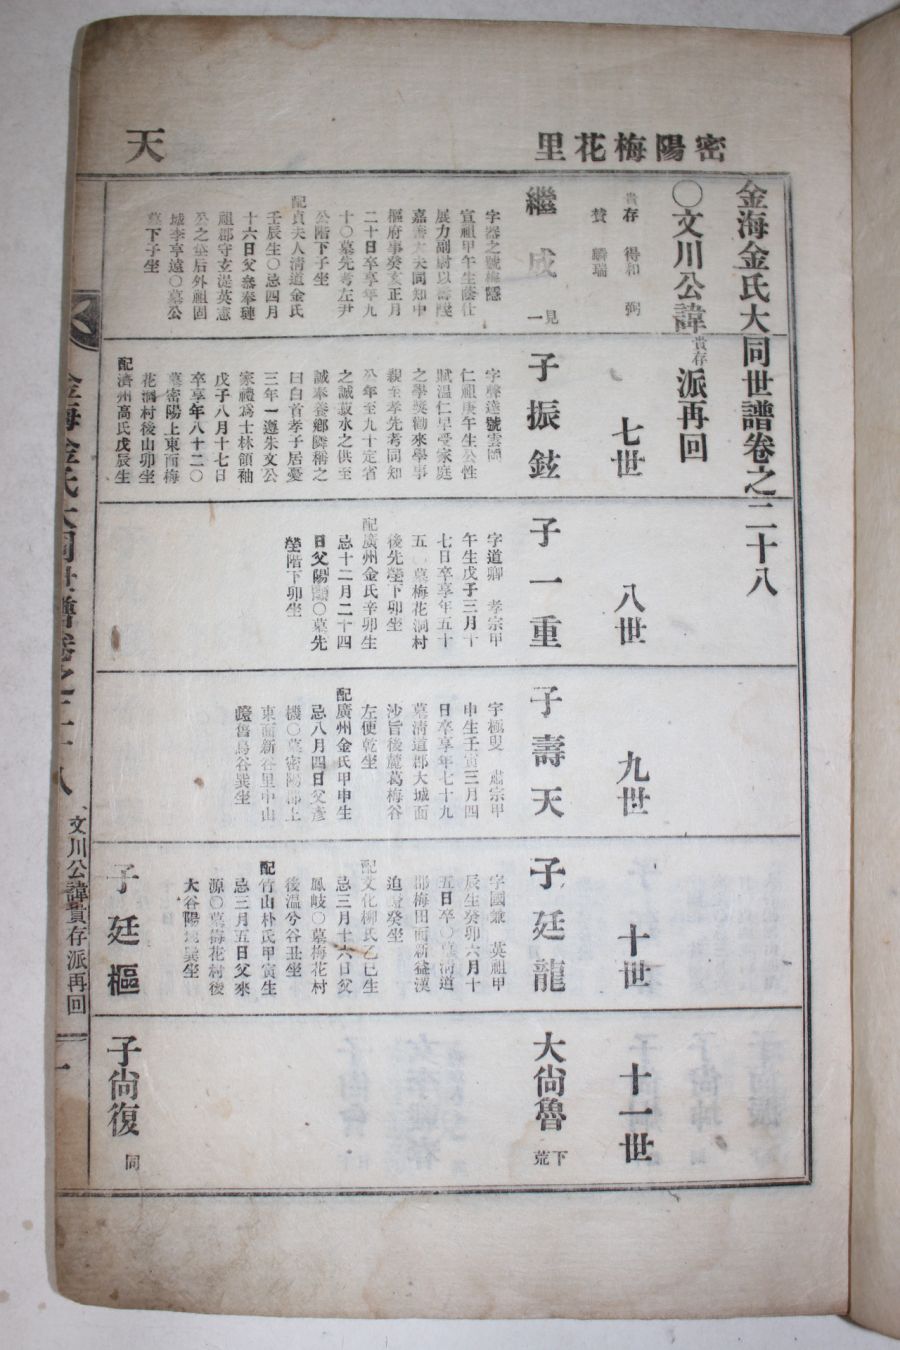 密陽梅花里
天
金海金氏大同世譜卷之二十八
〇文川公諱貴存派再回
貴存 得和 弼
贊 驎瑞
七世
八世
九世
十世
十一世
繼成
見一
字器之號梅隱
宣祖甲午生蔭仕
展力副尉以壽陞
嘉善大夫同知中
樞府事癸亥正月
二十日卒享年九
十〇墓先考左尹
公階下子坐
配貞夫人清道金氏
壬辰生〇忌四月
十六日父參奉璉
祖郡守玄湜英憲
公之墓后外祖固
城李享遠〇墓公
墓下子坐
子振鉉
字聲遠號雲隱
仁祖庚午生公性
賦温仁早受家庭
之學獎勸來學事
親至孝先考同知
公年至九十定省
之誠菽水之供至
誠奉養鄉隣稱之
曰白首孝子居憂
三年一遵朱文公
家禮爲士林領袖
戊子八月十七日
卒享年八十二〇
墓密陽上東面梅
花洞村後山卯坐
配濟州高氏戊辰生
子一重
字道卿 孝宗甲
午生戊子三月十
七日卒享年五十
五〇墓梅花洞村
後先塋下卯坐
配廣州金氏辛卯生
忌十二月二十四
日父陽顯〇墓先
塋階下卯坐
子壽天
字極叟 肅宗甲
申生壬寅三月四
日卒享年七十九
墓清道郡大城面
沙旨後麓葛梅谷
左便乾坐
配廣州金氏甲申生
忌八月四日父彦
機〇墓密陽郡上
東面新谷里中山
嶝舊鳥谷巽坐
子廷龍
字國兼 英祖甲
辰生癸卯六月十
五日卒〇墓清道
郡梅田面新益漢
追 癸坐
配文化柳氏乙巳生
忌三月十六日父
鳳岐〇墓梅花村
後温兮谷丑坐
配竹山朴氏甲寅生
忌三月五日父來
源〇墓梅花村後
大谷陽地巽坐
子廷樞
大尙魯
下荒
子尙復
同
金海金氏大同世譜卷之二十八
文川公諱貴存派再回
一